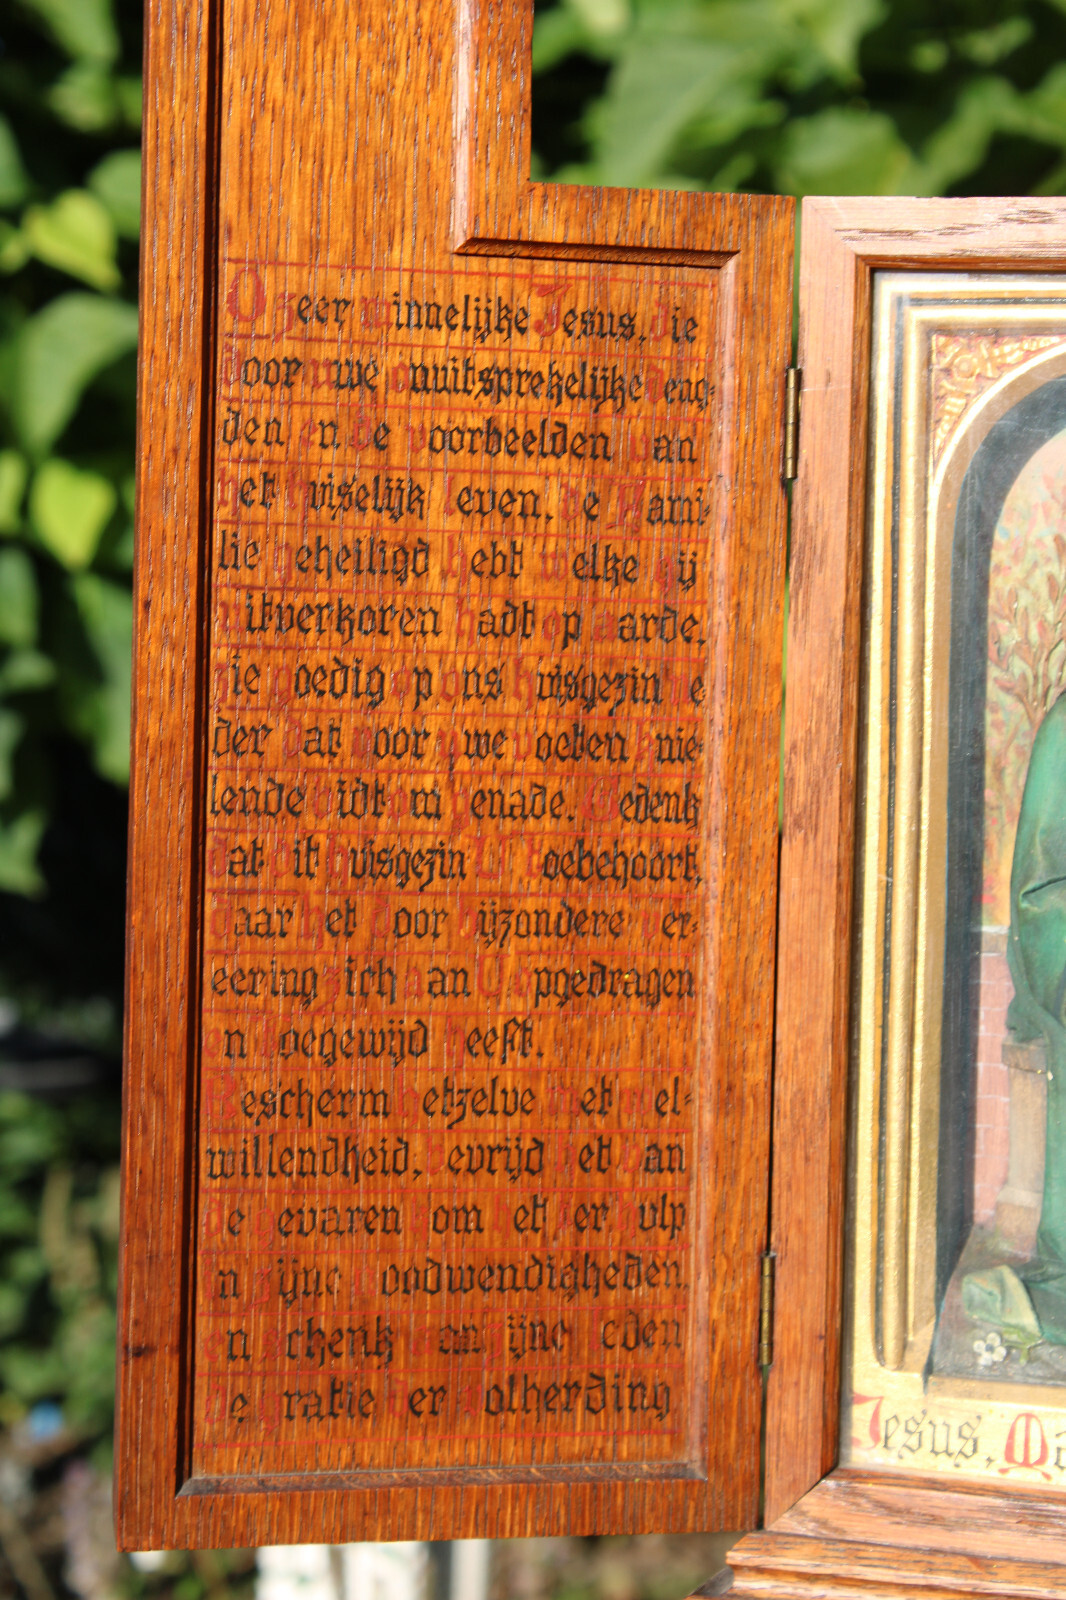 O zeer minnelijke Jesus, die
door uwe onuitsprekelijke deug-
den en de voorbeelden van
het huiselijk leven, de Fami-
lie geheiligd hebt welke gij
uitverkoren hadt op aarde,
zie goedig op ons huisgezin ne
der dat voor uwe voeten knie-
lende bidt om genade. Gedenk
dat dit huisgezin U toebehoort,
daar het door bijzondere ver-
eering zich aan U opgedragen
en toegewijd heeft.
Bescherm hetzelve met wel-
willendheid, bevrijd het van
de gevaren kom het ter hulp
in zijne noodwendigheden.
en schenk aan zijne leden
de gratie der volherding
Jesus, Ma